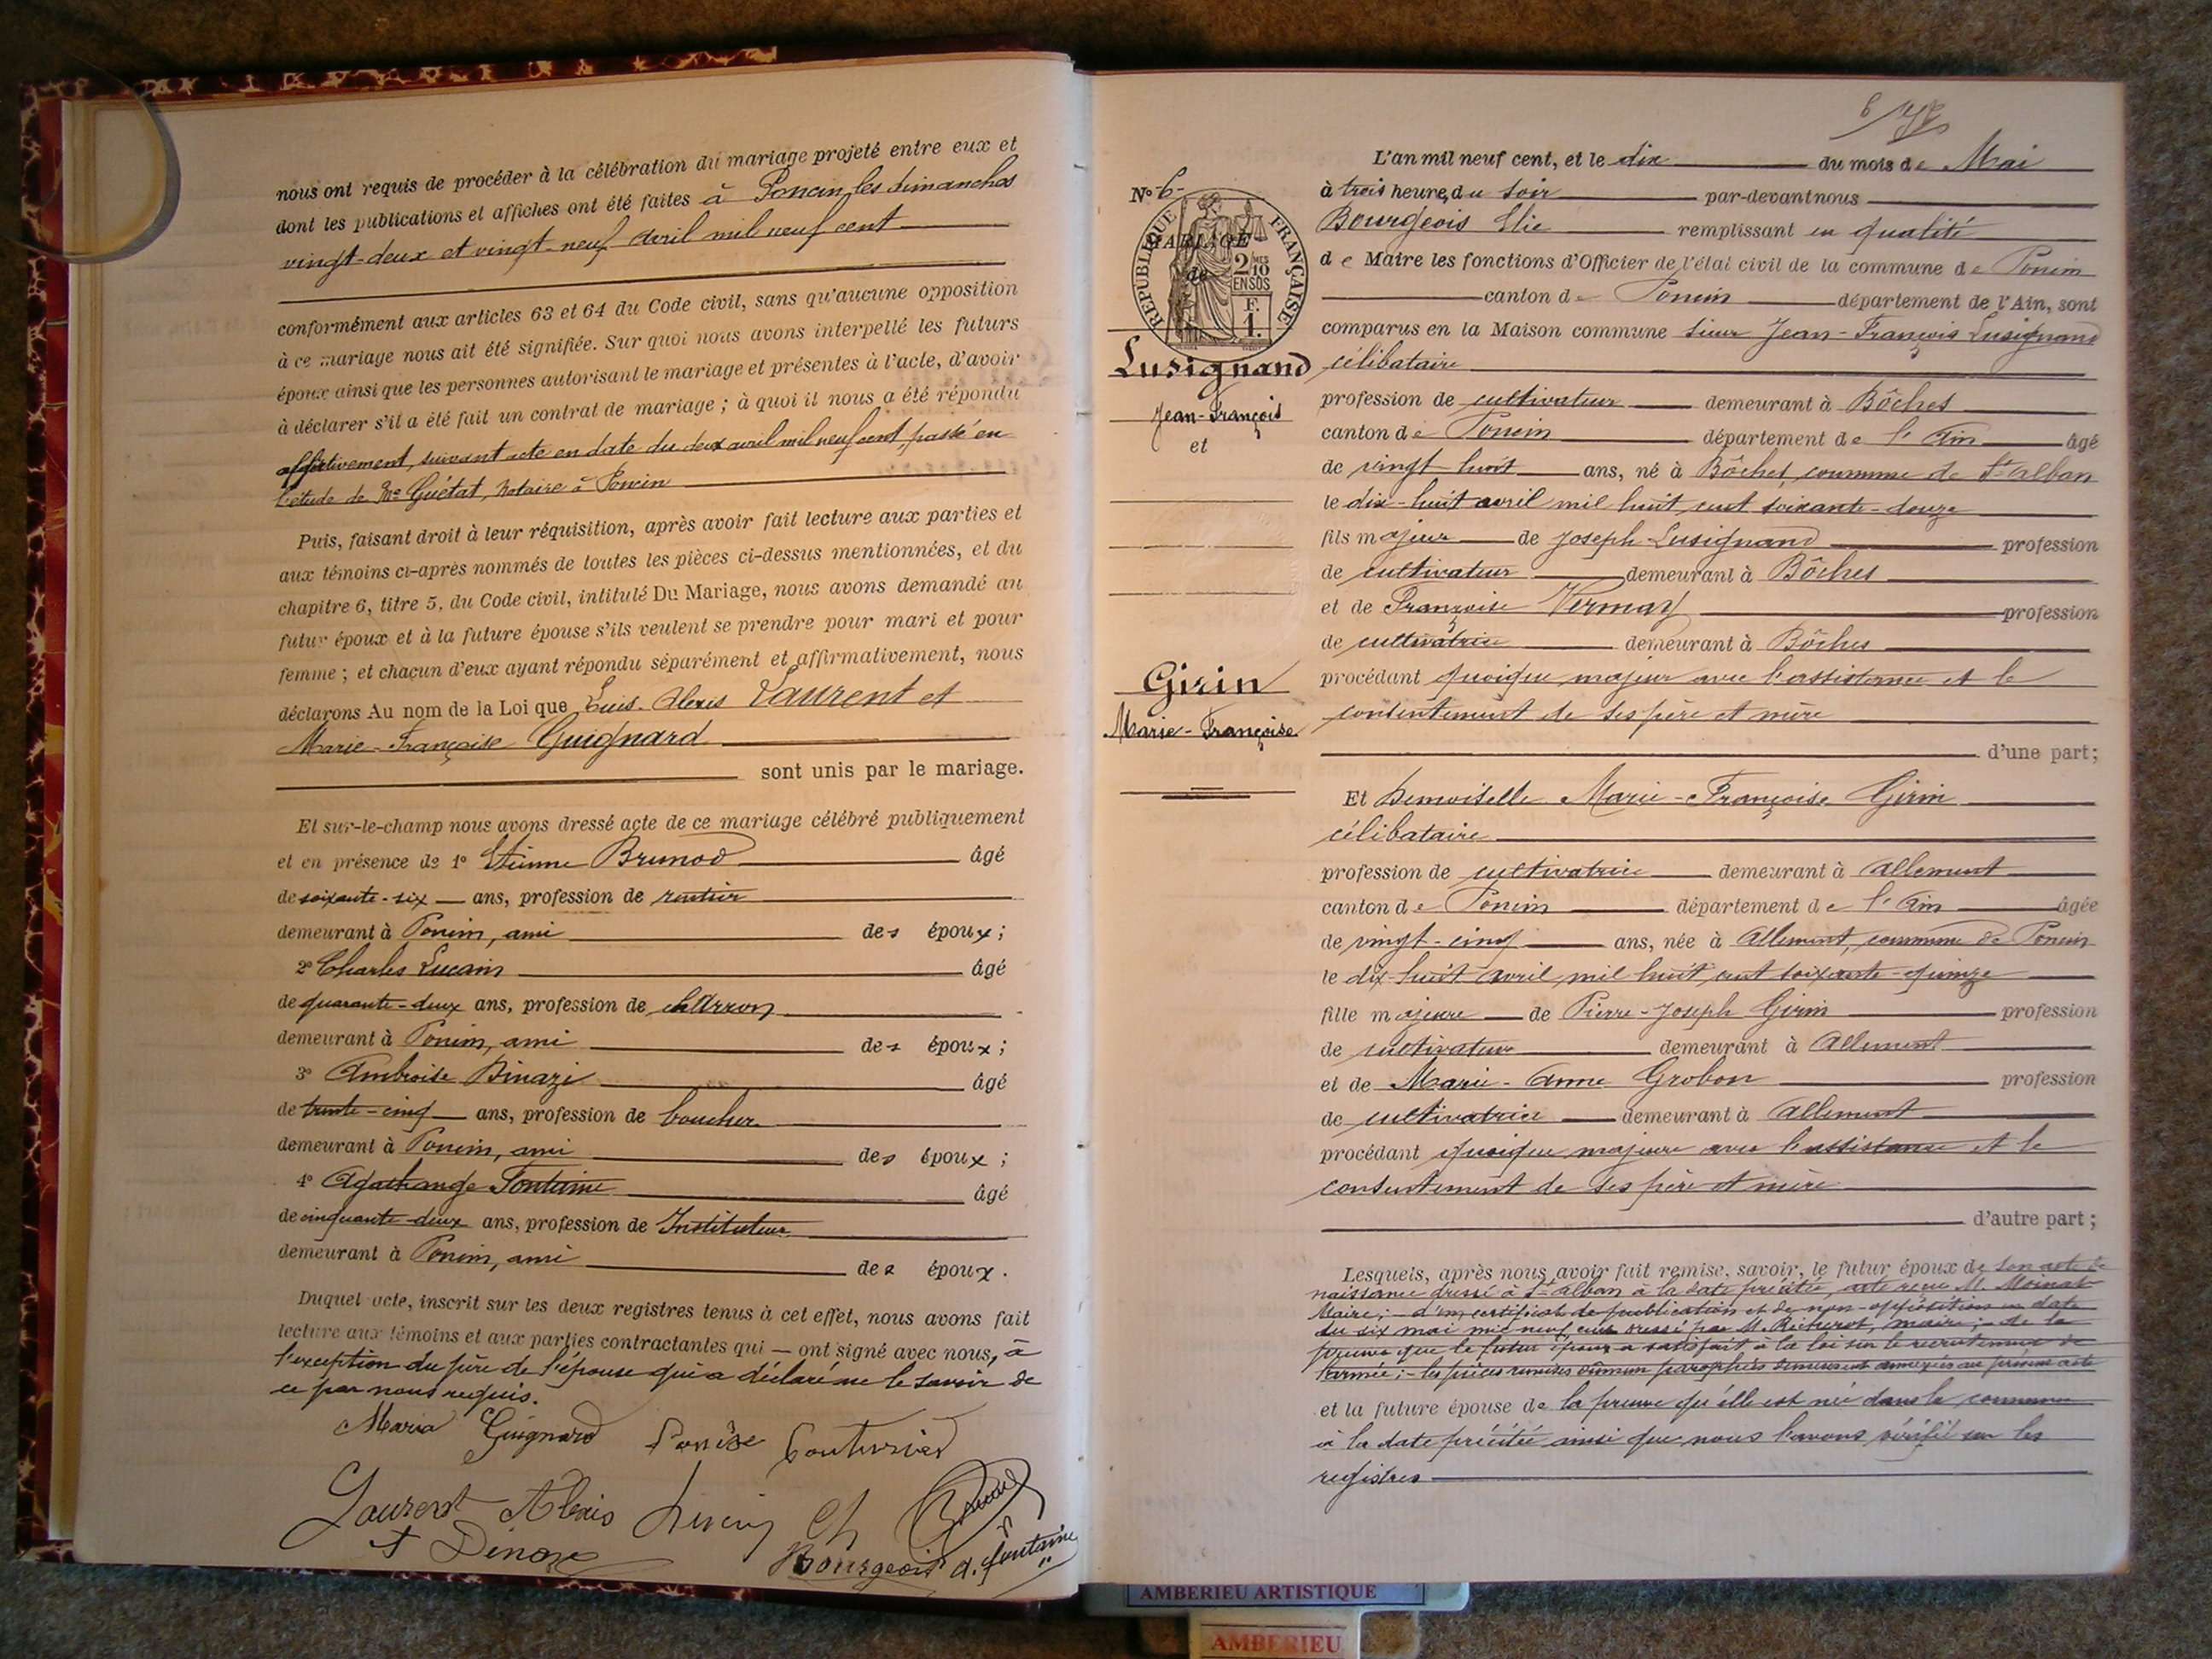 nous ont requis de procéder à la célébration du mariage projeté entre eux et
dont les publications et affiches ont été faites à Poncin, les dimanches
vingt-deux et vingt-neuf avril mil neuf cent
conformément aux articles 63 et 64 du Code civil, sans qu'aucune opposition
à ce mariage nous ait été signifiée. Sur quoi nous avons interpellé les futurs
époux ainsi que les personnes autorisant le mariage et présentes à l'acte, d'avoir
à déclarer s'il a été fait un contrat de mariage ; à quoi il nous a été répondu
affirmativement, suivant acte en date du deux avril mil neuf cent, passé en
l'étude de Me Guétat, notaire à Poncin
Puis, faisant droit à leur réquisition, après avoir fait lecture aux parties et
aux témoins ci-après nommés de toutes les pièces ci-dessus mentionnées, et du
chapitre 6, titre 5, du Code civil, intitulé Du Mariage, nous avons demandé au
futur époux et à la future épouse s'ils veulent se prendre pour mari et pour
femme ; et chacun d'eux ayant répondu séparément et affirmativement, nous
déclarons Au nom de la Loi que Louis-Alexis Laurent et
Marie-Françoise Guignard
sont unis par le mariage.
Et sur-le-champ nous avons dressé acte de ce mariage célébré publiquement
et en présence de 1° Etienne Brunod âgé
de soixante-six ans, profession de rentier
demeurant à Poncin, ami des époux ;
2° Charles Lucain âgé
de quarante-deux ans, profession de charron
demeurant à Poncin, ami des époux ;
3° Ambroise Dinazi âgé
de trente-cinq ans, profession de boucher
demeurant à Poncin, ami des époux ;
4° Agathange Fontaine âgé
de cinquante-deux ans, profession de Instituteur
demeurant à Poncin, ami des époux.
Duquel acte, inscrit sur les deux registres tenus à cet effet, nous avons fait
lecture aux témoins et aux parties contractantes qui ont signé avec nous, à
l'exception du père de l'épouse qui a déclaré ne le savoir de
ce par nous requis.
Maria Guignard
Laurent Alexis
Bourgeois A. Fontaine
N° 6
RÉPUBLIQUE FRANÇAISE
2/10 EN SUS
F. 1.
MARIAGE
de
Lusignand
Jean-François
et
Girin
Marie-Françoise
L'an mil neuf cent, et le dix du mois de Mai
à trois heures du soir par-devant nous
Bourgeois Elie remplissant en qualité
de Maire les fonctions d'Officier de l'état civil de la commune de Poncin
canton de Poncin département de l'Ain, sont
comparus en la Maison commune sieur Jean-François Lusignand
célibataire
profession de cultivateur demeurant à Bôches
canton de Poncin département de l'Ain âgé
de vingt-huit ans, né à Bôches, commune de St Alban
le dix-huit avril mil huit cent soixante-douze
fils majeur de Joseph Lusignand profession
de cultivateur demeurant à Bôches
et de Françoise Vermay profession
de cultivatrice demeurant à Bôches
procédant quoique majeur avec l'assistance et le
consentement de ses père et mère
d'une part ;
Et Demoiselle Marie-Françoise Girin
célibataire
profession de cultivatrice demeurant à Allement
canton de Poncin département de l'Ain âgée
de vingt-cinq ans, née à Allement, commune de Poncin
le dix-huit avril mil huit cent soixante-quinze
fille majeure de Pierre-Joseph Girin profession
de cultivateur demeurant à Allement
et de Marie-Anne Grobon profession
de cultivatrice demeurant à Allement
procédant quoique majeure avec l'assistance et le
consentement de ses père et mère
d'autre part ;
Lesquels, après nous avoir fait remise, savoir, le futur époux de son acte de
naissance dressé à St Alban à la date précitée, acte reçu M. Moinat
Maire ; d'un certificat de publication et de non-opposition en date
du six mai mil neuf cent dressé par M. Richerot, maire ; de la
preuve que le futur époux a satisfait à la loi sur le recrutement de
l'armée ; les pièces remises dûment paraphées demeurent annexées au présent acte
et la future épouse de la preuve qu'elle est née dans la commune
à la date précitée ainsi que nous l'avons vérifié sur les
registres
AMBERIEU ARTISTIQUE
AMBERIEU